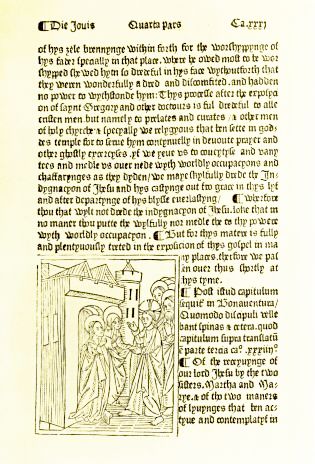 ¶ Die Jouis Quarta pars Ca.xxxj
of hys zele brennynge within forth for the worshyppynge of
hys fader specially in that place. where he owed most to be wor
shypped shewed hym so dredeful in hys face wythoutforth that
they weren wonderfully a dred and discomfited. and hadden
no power to wythstonde hym: Thys processe after the exposicio
on of saynt Gregory and other doctours is ful dredeful to alle
cristen men but namely to prelates and curates / a other men
of holy chyrche a specyally we relygyous that ben sette in god
des temple for to serue hym contynuelly in deuoute prayer and
other ghostly exercyses. yf we yeue vs to couetyse and vany
tees and medle vs ouer nede wyth worldly occupacyons and
chaffarynges as they dyden/ we maye skylfully drede the In
dygnacyon of Jhesu and hys castynge out fro grace in thys lyf
and after departynge of hys blysse euerlastyng/ ¶ wherfore
thou that wylt not drede the indygnacyon of Jhesu. loke that in
no maner thou putte the wylfully nor medle the to thy power
wyth worldly occupacyon. ¶ But for thys matere is fully
and plentyuously treted in the exposicion of thys gospel in ma
ny places. therfore we pas
sen ouer thus shortly at
thys tyme.
¶ Post istud capitulum
sequitur in Bonauentura/
Quomodo discipuli velle
bant spinas & cetera. quod
capitulum supra translatum
est parte tercia ca°. xxxiij°
¶ Of the receyuynge of
our lord Jhesu by the two
sisters. Martha and Ma
rye. a of the two maners
of lyuynges that ben ac
tyue and contemplatyf in